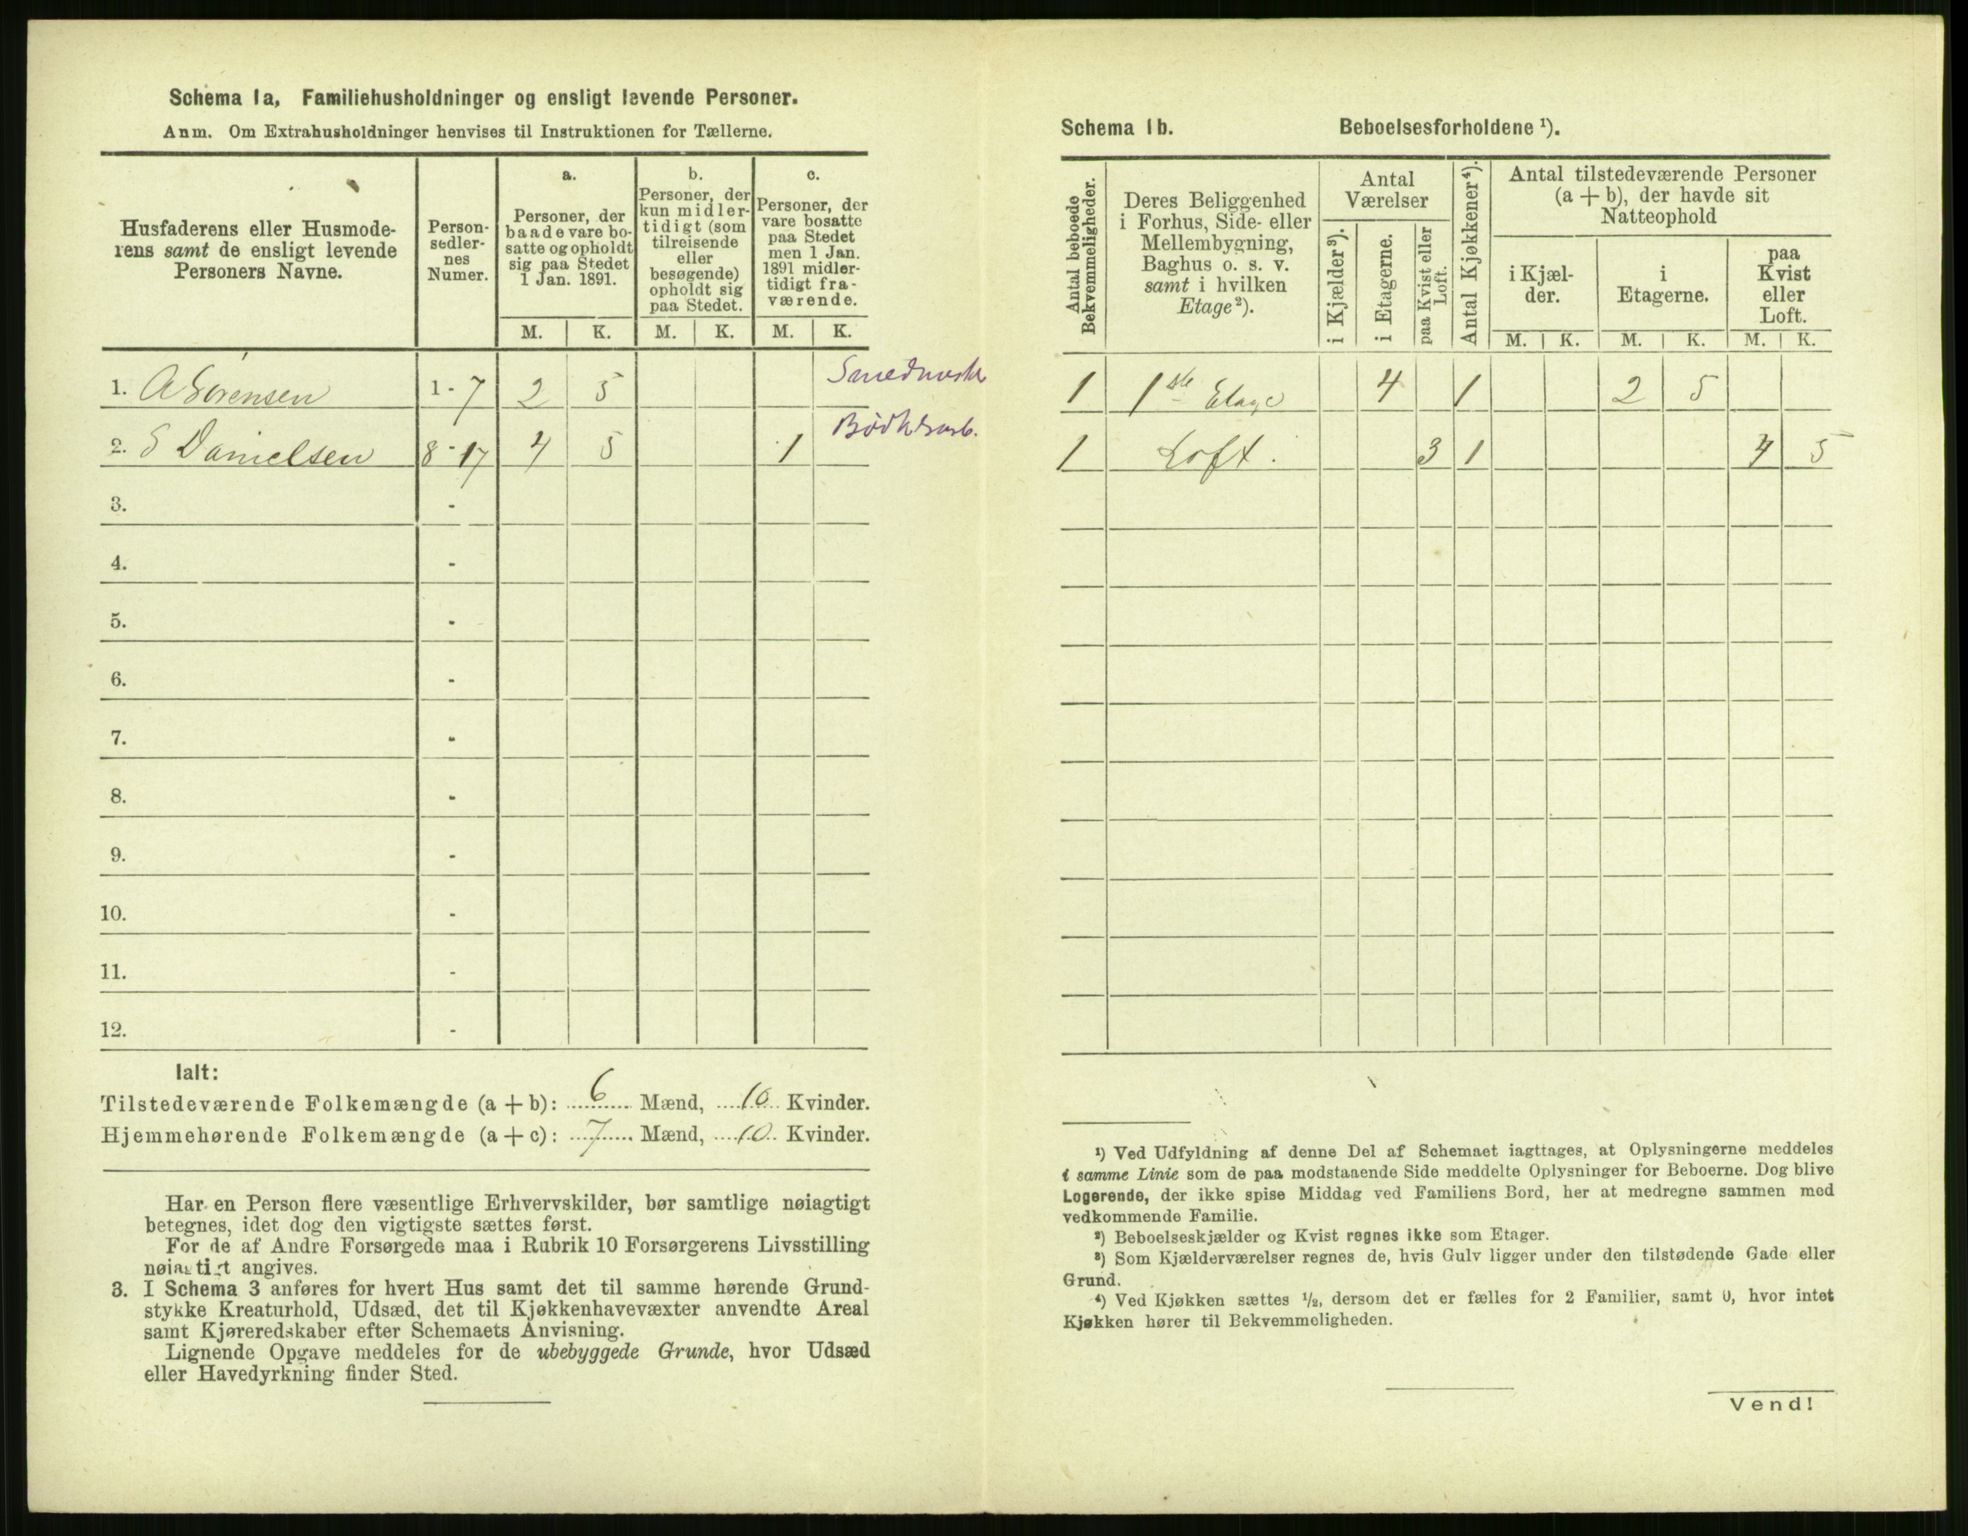 Schema 1a, Familiehusholdninger og ensligt levende Personer.
Anm. Om Extrahusholdninger henvises til Instruktionen for Tællerne.
Husfaderens eller Husmode-
rens samt de ensligt levende
Personers Navne.
Person-
sedler-
nes
Numer.
a.
Personer, der
baade vare bo-
satte og opholdt
sig paa Stedet
1 Jan. 1891.
b.
Personer, der
kun midler-
tidigt (som
tilreisende
eller
besøgende)
opholdt sig
paa Stedet.
c.
Personer, der
vare bosatte
paa Stedet
men 1 Jan.
1891 midler-
tidigt fra-
værende.
M. K. M. K. M. K.
1. A Sørensen 1 - 7 2 5
2. S Danielsen 8 - 17 4 5 1
Bødkerarb.
3. -
4. -
5. -
6. -
7. -
8. -
9. -
10. -
11. -
12. -
Ialt:
Tilstedeværende Folkemængde (a + b): 6 Mænd, 10 Kvinder.
Hjemmehørende Folkemængde (a + c): 7 Mænd, 10 Kvinder.
Har en Person flere væsentlige Erhvervskilder, bør samtlige nøiagtigt
betegnes, idet dog den vigtigste sættes først.
For de af Andre Forsørgede maa i Rubrik 10 Forsørgerens Livsstilling
nøiagtigt angives.
3. I Schema 3 anføres for hvert Hus samt det til samme hørende Grund-
stykke Kreaturhold, Udsæd, det til Kjøkkenhavevæxter anvendte Areal
samt Kjøreredskaber efter Schemaets Anvisning.
Lignende Opgave meddeles for de ubebyggede Grunde, hvor Udsæd
eller Havedyrkning finder Sted.
Schema 1b. Beboelsesforholdene ¹).
Antal beboede
Bekvemmeligheder.
Deres Beliggenhed
i Forhus, Side- eller
Mellembygning,
Baghus o. s. v.
samt i hvilken
Etage²).
Antal
Værelser
i Kjælder³).
i Etagerne.
paa Kvist eller
Loft.
Antal Kjøkkener⁴).
Antal tilstedeværende Personer
(a + b), der havde sit
Natteophold
i Kjæl-
der.
i
Etagerne.
paa
Kvist
eller
Loft.
M. K. M. K. M. K.
1 1ste Etage 4 1 2 5
1 Loft. 3 1 4 5
¹) Ved Udfyldning af denne Del af Schemaet iagttages, at Oplysningerne meddeles
i samme Linie som de paa modstaaende Side meddelte Oplysninger for Beboerne. Dog blive
Logerende, der ikke spise Middag ved Familiens Bord, her at medregne sammen med
vedkommende Familie.
²) Beboelseskjælder og Kvist regnes ikke som Etager.
³) Som Kjælderværelser regnes de, hvis Gulv ligger under den tilstødende Gade eller
Grund.
⁴) Ved Kjøkken sættes ½, dersom det er fælles for 2 Familier, samt 0, hvor intet
Kjøkken hører til Bekvemmeligheden.
Vend!